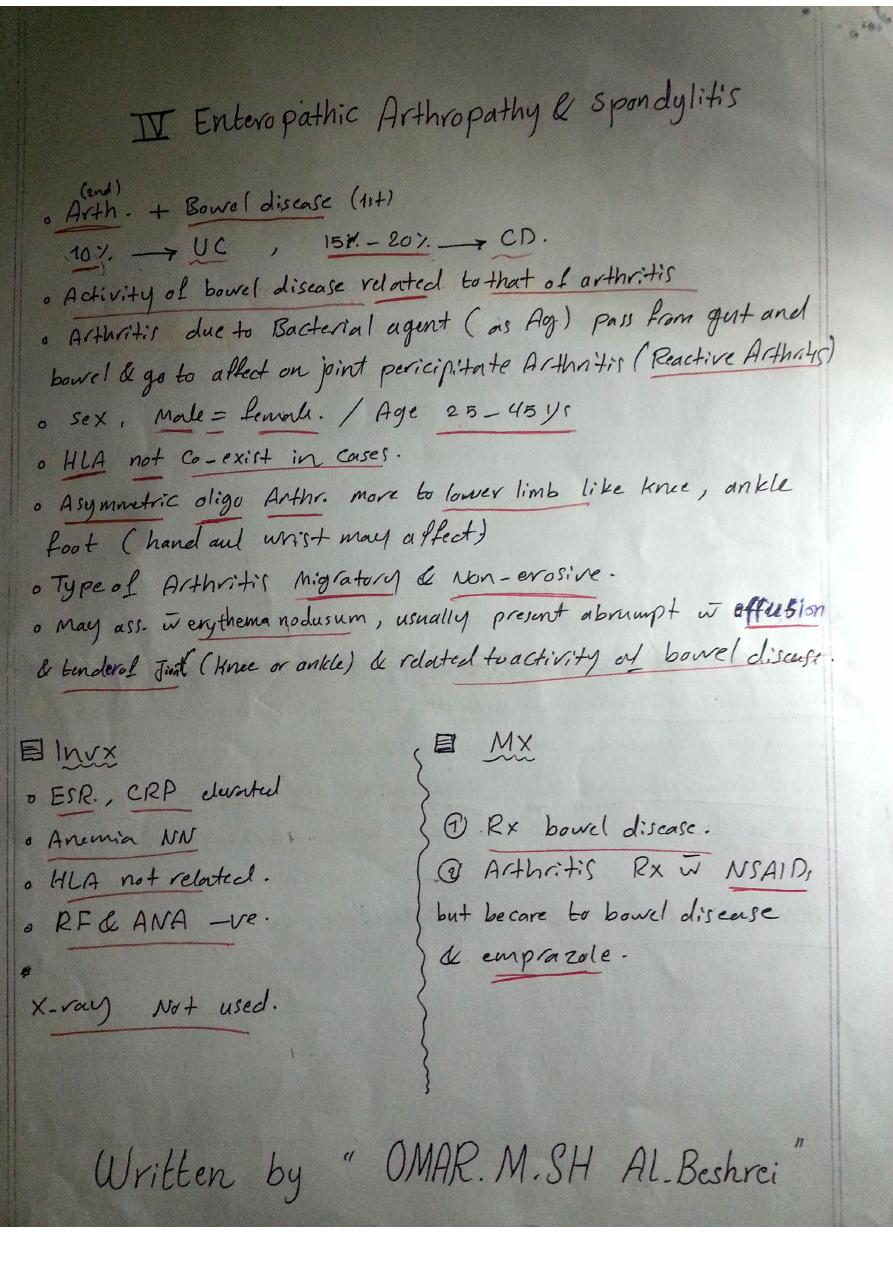 IV Enteropathic Arthropathy & spondylitis
(2nd)
Arth. + Bowel disease (1st)
10% → UC , 15% - 20% → CD.
Activity of bowel disease related to that of arthritis
Arthritis due to Bacterial agent ( as Ag) pass from gut and
bowel & go to affect on joint pericipitate Arthritis (Reactive Arthritis)
Sex, Male = female. / Age 25-45 yrs
HLA not Co-exist in cases.
Asymmetric oligo Arthr. more to lower limb like knee, ankle
foot (hand and wrist may affect)
Type of Arthritis Migratory & Non-erosive.
May ass. w̄ erythema nodusum, usually present abrumpt w̄ effusion
& tender of Joint (knee or ankle) & related to activity of bowel disease.
Invx
ESR., CRP elevated
Anemia NN
HLA not related.
RF & ANA -ve.
X-ray Not used.
Mx
① Rx bowel disease.
② Arthritis Rx w̄ NSAIDs
but becare to bowel disease
& emprazole.
Written by " OMAR.M.SH AL-Beshrei "